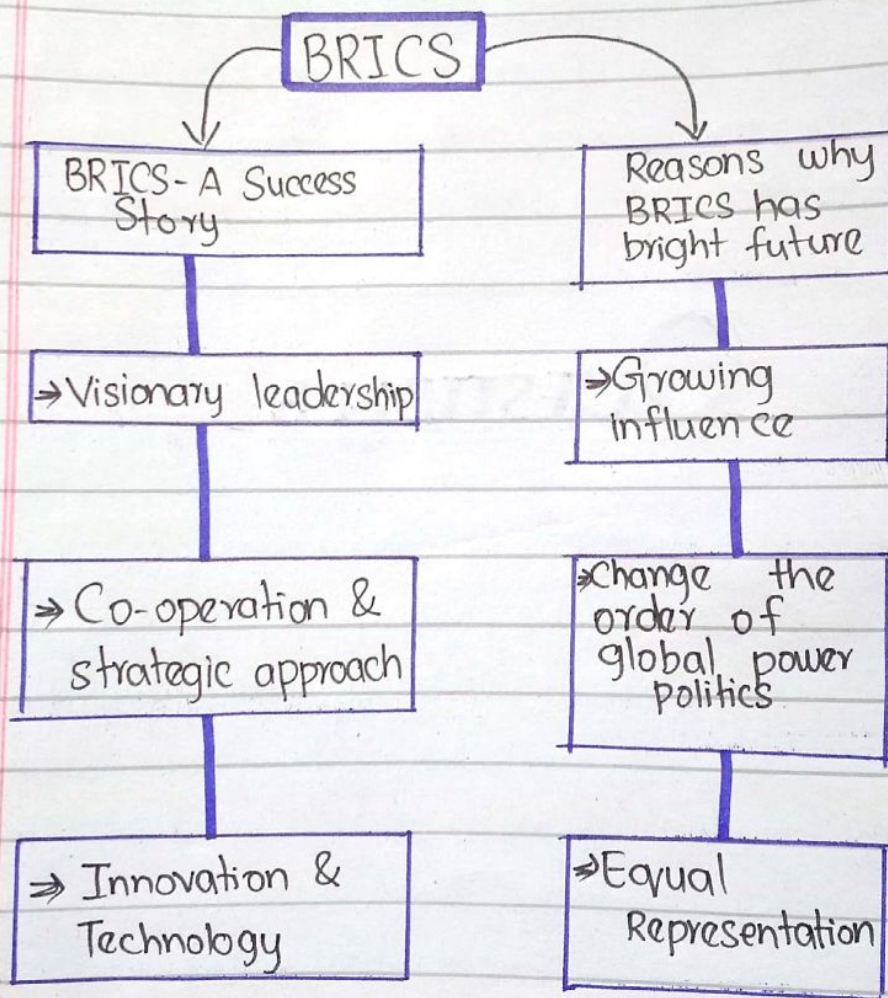 BRICS
BRICS- A Success
Story
→Visionary leadership
⇒ Co-operation &
strategic approach
⇒ Innovation &
Technology
Reasons why
BRICS has
bright future
⇒Growing
influence
⇒Change the
order of
global power
politics
⇒Equal
Representation